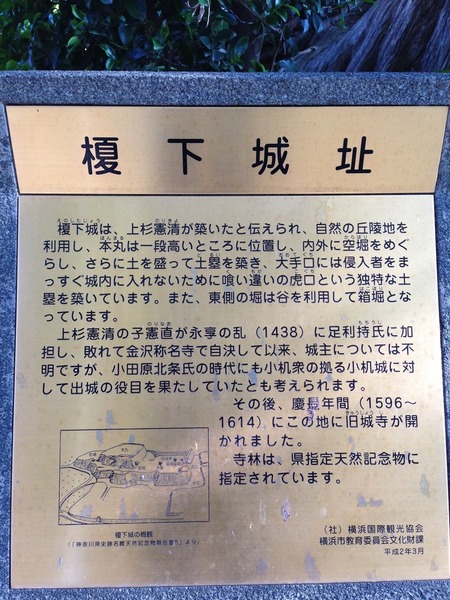 榎下城址
榎下城は、上杉憲清が築いたと伝えられ、自然の丘陵地を
利用し、本丸は一段高いところに位置し、内外に空堀をめぐ
らし、さらに土を盛って土塁を築き、大手口には侵入者をま
っすぐ城内に入れないために喰い違いの虎口という独特な土
塁を築いています。また、東側の堀は谷を利用して箱堀とな
っています。
上杉憲清の子憲直が永享の乱（1438）に足利持氏に加
担し、敗れて金沢称名寺で自決して以来、城主については不
明ですが、小田原北条氏の時代にも小机衆の拠る小机城に対
して出城の役目を果たしていたとも考えられます。
その後、慶長年間（1596～
1614）にこの地に旧城寺が開
かれました。
寺林は、県指定天然記念物に
指定されています。
榎下城の概観
（社）横浜国際観光協会
横浜市教育委員会文化財課
平成2年3月